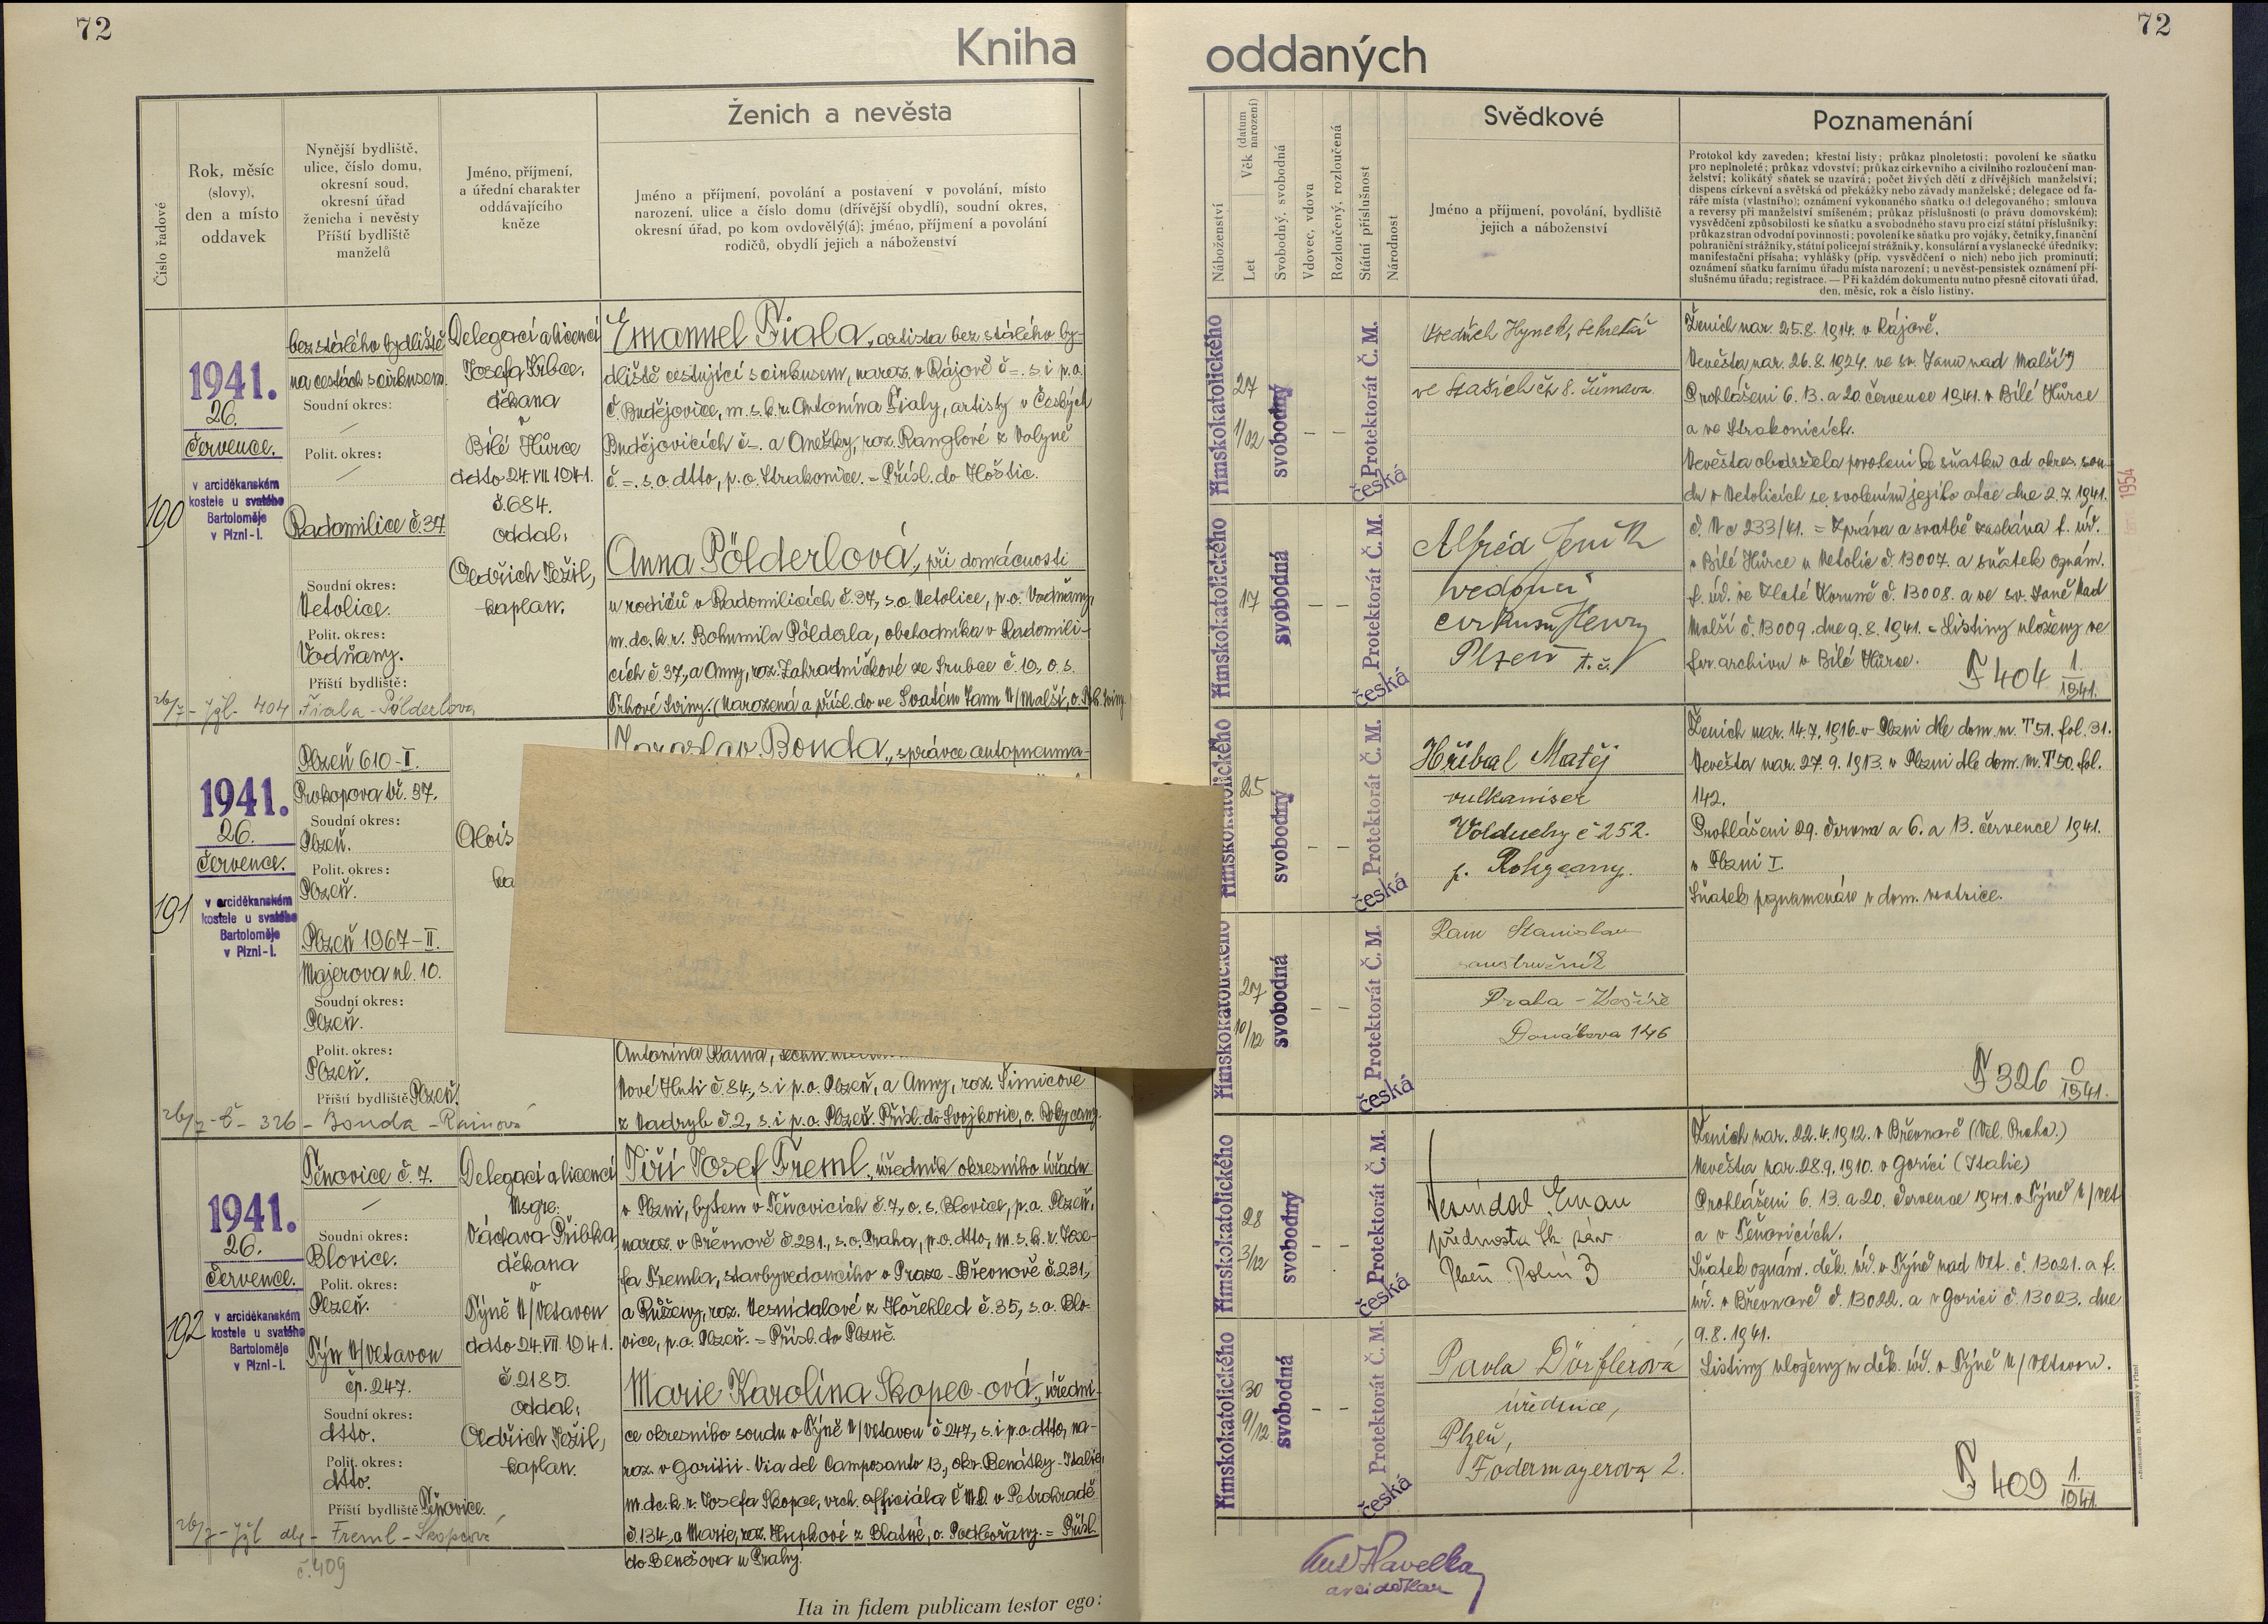 72
72
Kniha oddaných
Číslo řadové
Rok, měsíc
(slovy),
den a místo
oddavek
Nynější bydliště,
ulice, číslo domu,
okresní soud,
okresní úřad
ženicha i nevěsty
Příští bydliště
manželů
Jméno, příjmení,
a úřední charakter
oddávajícího
kněze
Ženich a nevěsta
Jméno a příjmení, povolání a postavení v povolání, místo
narození, ulice a číslo domu (dřívější obydlí), soudní okres,
okresní úřad, po kom ovdovělý(á); jméno, příjmení a povolání
rodičů, obydlí jejich a náboženství
Náboženství
Věk (datum narození)
Let
Svobodný, svobodná
Vdovec, vdova
Rozloučený, rozloučená
Státní příslušnost
Národnost
Svědkové
Jméno a příjmení, povolání, bydliště
jejich a náboženství
Poznamenání
Protokol kdy zaveden; křestní listy; průkaz plnoletosti; povolení ke sňatku
pro neplnoleté; průkaz vdovství; průkaz církevního a civilního rozloučení man-
želství; kolikátý sňatek se uzavírá; počet živých dětí z dřívějších manželství;
dispens církevní a světská od překážky nebo závady manželské; delegace od fa-
ráře místa (vlastního); oznámení vykonaného sňatku od delegovaného; smlouva
a reversy při manželství smíšeném; průkaz příslušnosti (o právu domovském);
vysvědčení způsobilosti ke sňatku a svobodného stavu pro cizí státní příslušníky;
průkaz stran odvodní povinnosti; povolení ke sňatku pro vojáky, četníky, finanční
pohraniční strážníky, státní policejní strážníky, konsulární a vyslanecké úředníky;
manifestační přísaha; vyhlášky (příp. vysvědčení o nich) nebo jich prominutí;
oznámení sňatku farnímu úřadu místa narození; u nevěst-pensistek oznámení pří-
slušnému úřadu; registrace. — Při každém dokumentu nutno přesně citovati úřad,
den, měsíc, rok a číslo listiny.
190
1941.
26.
července.
v arciděkanském
kostele u svatého
Bartoloměje
v Plzni-I.
bez stálého bydliště
na cestách s cirkusem.
Soudní okres:
Polit. okres:
Radomilice č. 37
Soudní okres:
Netolice.
Polit. okres:
Vodňany.
Příští bydliště:
26/7 - 404 Fiala - Pölderlova
Delegací a licencí
Josefa Krbce,
děkana
v
Bílé Hůrce
ddto 24. VII. 1941.
č. 684.
oddal:
Oldřich Ježil,
kaplan.
Emanuel Fiala, artista bez stálého by-
dliště cestující s cirkusem, naroz. v Rájově č =. s. i p. o.
Č. Budějovice, m. s. k. r. Antonína Fialy, artisty v Českých
Budějovicích č =. a Anežky, roz. Ranglové z Volyně
č. =. s. o. dtto, p. o. Strakonice. = Přísl. do Hoštic.
Anna Pölderlová, při domácnosti
u rodičů v Radomilicích č. 37, s. o. Netolice, p. o. Vodňany,
m. dc. k. r. Bohumila Pölderla, obchodníka v Radomili-
cích č 37, a Anny, roz. Zahradníčkové ze Srubce č. 19, o. s.
Trhové Sviny. (Narozená a přísl. do ve Svatém Janu N/Malší,
římskokatolického
27
1/02
svobodný
— —
Protektorát Č. M.
česká
římskokatolického
17
svobodná
— —
Protektorát Č. M.
česká
Hynek, sekretář
ve Stašich čp 8. Šumava.
Alfréd Jeník
vedoucí
cirkusu Henry
Plzeň t. č.
Ženich nar. 25. 8. 1914. v Rájově.
Nevěsta nar. 26. 8. 1924. ve sv. Janu nad Malší
Prohlášeni 6. 13. a 20. července 1941. v Bílé Hůrce
a ve Strakonicích.
Nevěsta obdržela povolení ke sňatku od okres. sou-
du v Netolicích se svolením jejího otce dne 2. 7. 1941.
č. Nc 233/41. = Zpráva o svatbě zaslána f. úř.
v Bílé Hůrce u Netolic č. 13007. a sňatek oznám.
f. úř. ve Zlaté Koruně č. 13008. a ve sv. Janě Nad
Malší č. 13009. dne 9. 8. 1941. = Listiny uloženy ve
far. archivu v Bílé Hůrce.
F 404 1./1941.
1954
191
1941.
26.
července.
v arciděkanském
kostele u svatého
Bartoloměje
v Plzni-I.
Plzeň 610-I.
Prokopova tř. 37.
Soudní okres:
Plzeň.
Polit. okres:
Plzeň.
Plzeň 1967-II.
Majerova ul. 10.
Soudní okres:
Plzeň.
Polit. okres:
Plzeň.
Příští bydliště Plzeň.
26/7 - č - 326 - Bonda - Rainová
Alois
ka
Jaroslav Bonda, správce autopneuma-
Antonína Raina,
Nové Huti č 84., s. i p. o. Plzeň, a Anny, roz. Šimicové
z Nadryb č. 2, s. i p. o. Plzeň. Přísl. do Svojkovic, o. Rokycany.
římskokatolického
25
svobodný
— —
Protektorát Č. M.
česká
římskokatolického
27
10/12
svobodná
— —
Protektorát Č. M.
česká
Hříbal Matěj
vulkaniser
Volduchy č 252.
p. Rokycany.
Rain Stanislav
soustružník
Praha - Košíře
146
Ženich nar. 14. 7. 1916. v Plzni dle dom. m. T 51. fol. 31.
Nevěsta nar. 27. 9. 1913. v Plzni dle dom. m. T 50. fol.
142.
Prohlášeni 29. června a 6. a 13. července 1941.
v Plzni I.
Sňatek poznamenán v dom. matrice.
F 326 0/1941.
192
1941.
26.
července.
v arciděkanském
kostele u svatého
Bartoloměje
v Plzni-I.
Těnovice č. 7.
Soudní okres:
Blovice.
Polit. okres:
Plzeň.
Týn N/Vltavou
čp. 247.
Soudní okres:
dtto.
Polit. okres:
dtto.
Příští bydliště Těňovice.
26/7 - - Freml - Skopcová
č. 409
Delegací a licencí
Msgre.
Václava Přibka,
děkana
v
Týně N/Vltavou
ddto 24. VII. 1941.
č. 2185.
oddal:
Oldřich Ježil,
kaplan.
Jiří Josef Freml, úředník okresního úřadu
v Plzni, bytem v Těňovicích č. 7, o. s. Blovice, p. o. Plzeň,
naroz. v Břevnově č. 231., s. o. Praha, p. o. dtto, m. s. k. r. Jose-
fa Fremla, stavbyvedoucího v Praze - Břevnově č. 231,
a Růženy, roz. Nesnídalové z Hořehled č. 35, s. o. Blo-
vice, p. o. Plzeň. = Přísl. do Plzně.
Marie Karolina Skopec-ová, úředni-
ce okresního soudu v Týně N/Vltavou č 247, s. i p. o. dtto, na-
roz. v Goritii - Via del Camposanto 13., okr. Benátky - Italie,
m. dc. k. r. Josefa Skopce, vrch. officiála Č. N. D. v Petrohradě
č. 134, a Marie, roz. Hupkové z Blatné, o. Podbořany. = Přísl.
do Benešova u Prahy.
římskokatolického
28
3/12
svobodný
— —
Protektorát Č. M.
česká
římskokatolického
30
9/12
svobodná
— —
Protektorát Č. M.
česká
Nesnídal Eman
přednosta
Plzeň Polní 3
Pavla Dörflerová
úřednice,
Plzeň,
Fodermayerova 2.
Ženich nar. 22. 4. 1912. v Břevnově (Vel. Praha.)
Nevěsta nar. 28. 9. 1910. v Gorici (Italie)
Prohlášeni 6. 13. a 20. července 1941. v Týně N/Vlt
a v Těňovicích.
Sňatek oznám. děk. úř. v Týně nad Vlt. č. 13021. a f.
úř. v Břevnově č. 13022. a v Gorici č. 13023. dne
9. 8. 1941.
Listiny uloženy u děk. úř. v Týně N/Vltavou.
F 409 1./1941.
Ant Havelka
arciděkan
Ita in fidem publicam testor ego: